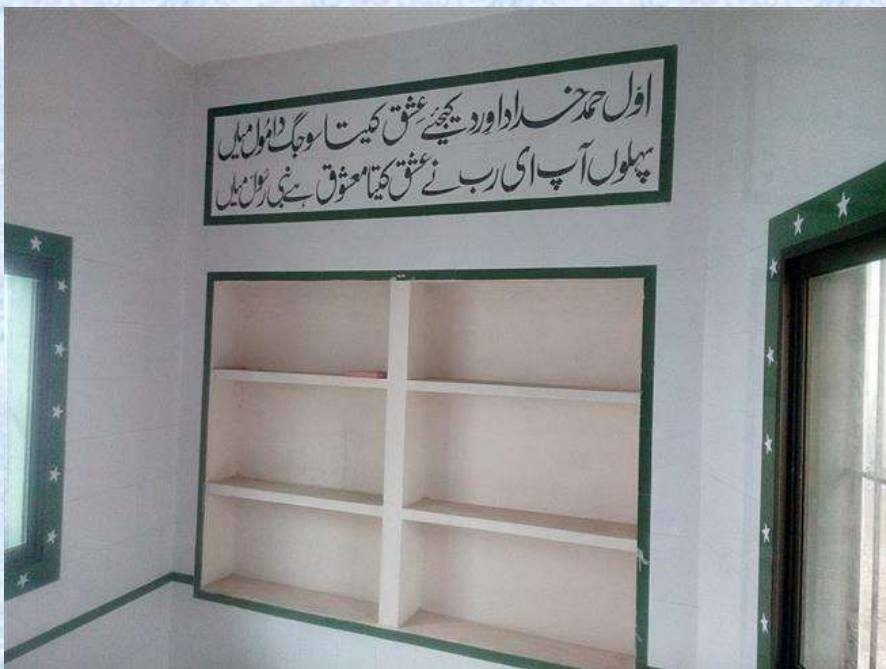 اوّل حمد خدا دا ورد کیجئے عِشق کیتا سو جگ دا مُول میاں
پہلوں آپ ای رب نے عشق کیتا معشوق ہے نبی رسول میاں